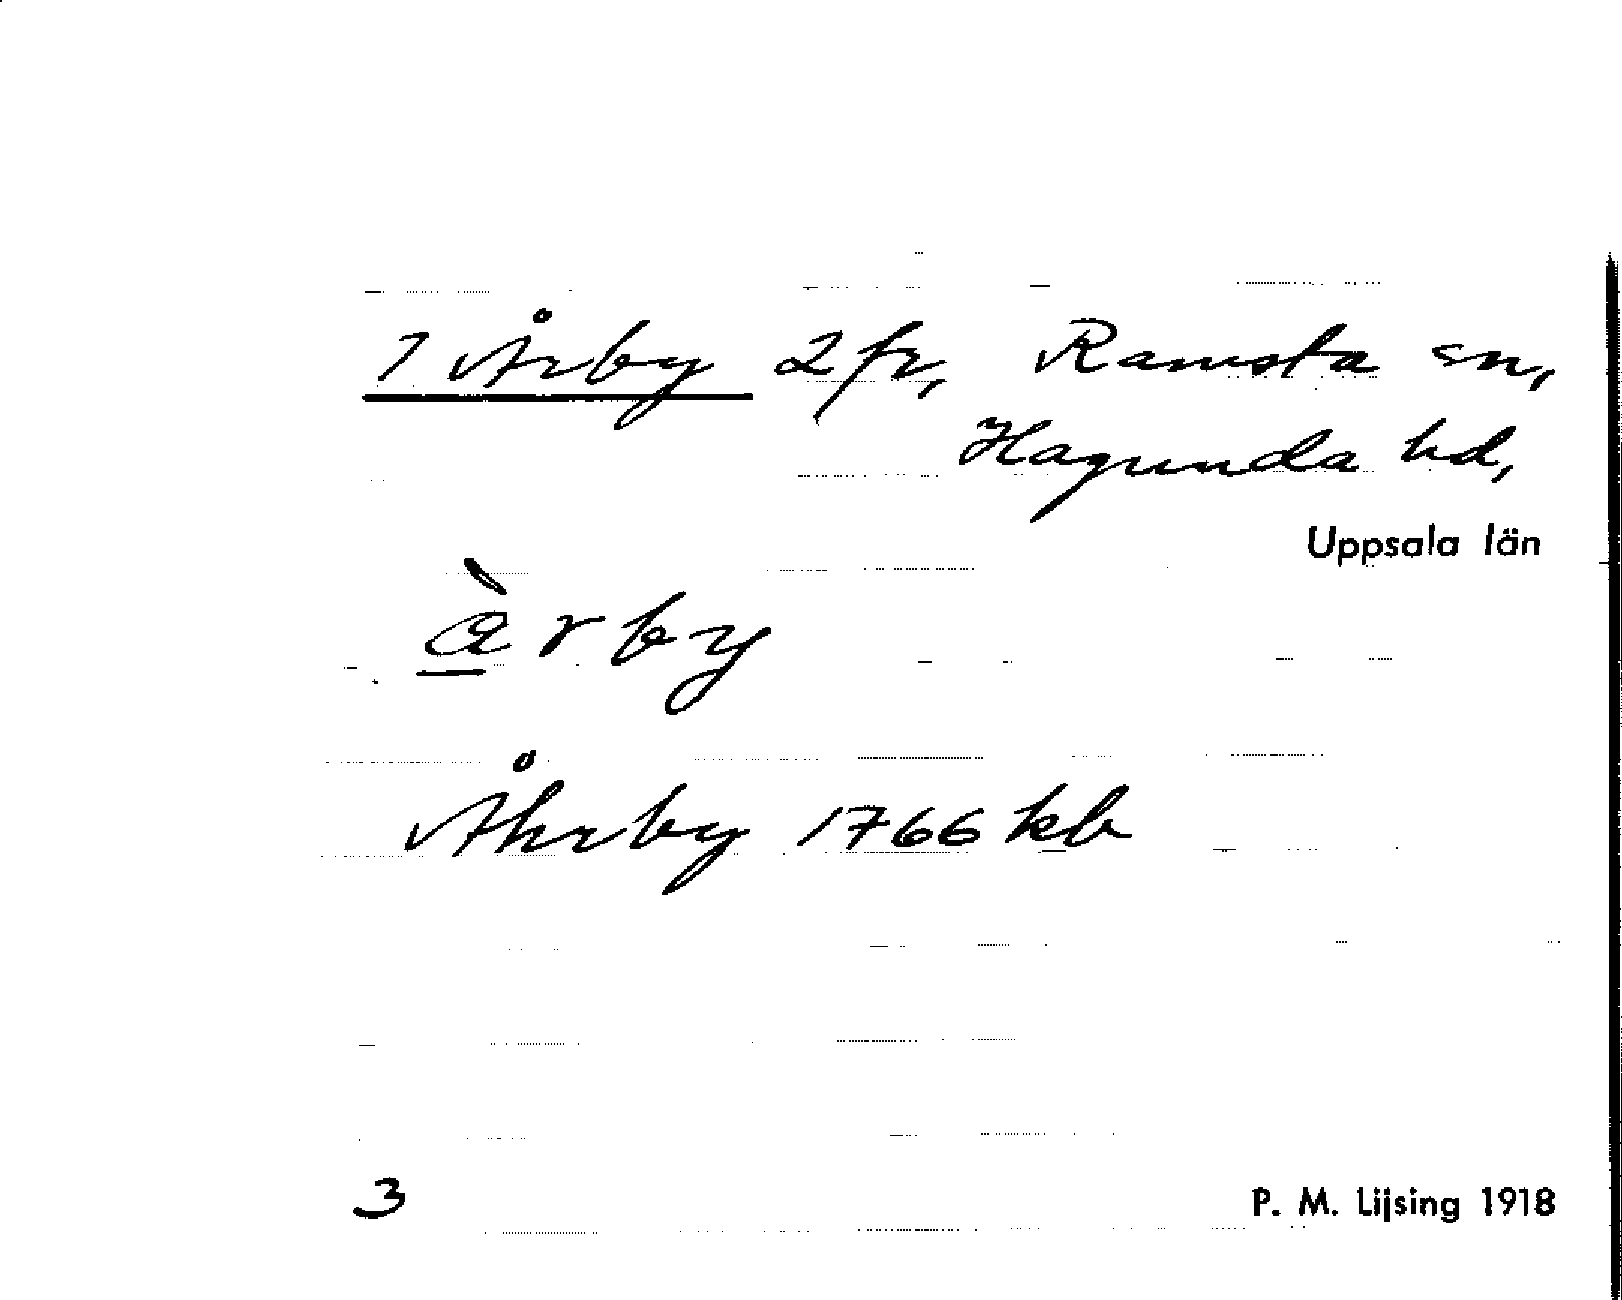 1 Årby 2 fr, Ramsta sn,
Hagunda hd,
Uppsala län
àrby
Åhrby 1766 kb
3
P. M. Lijsing 1918